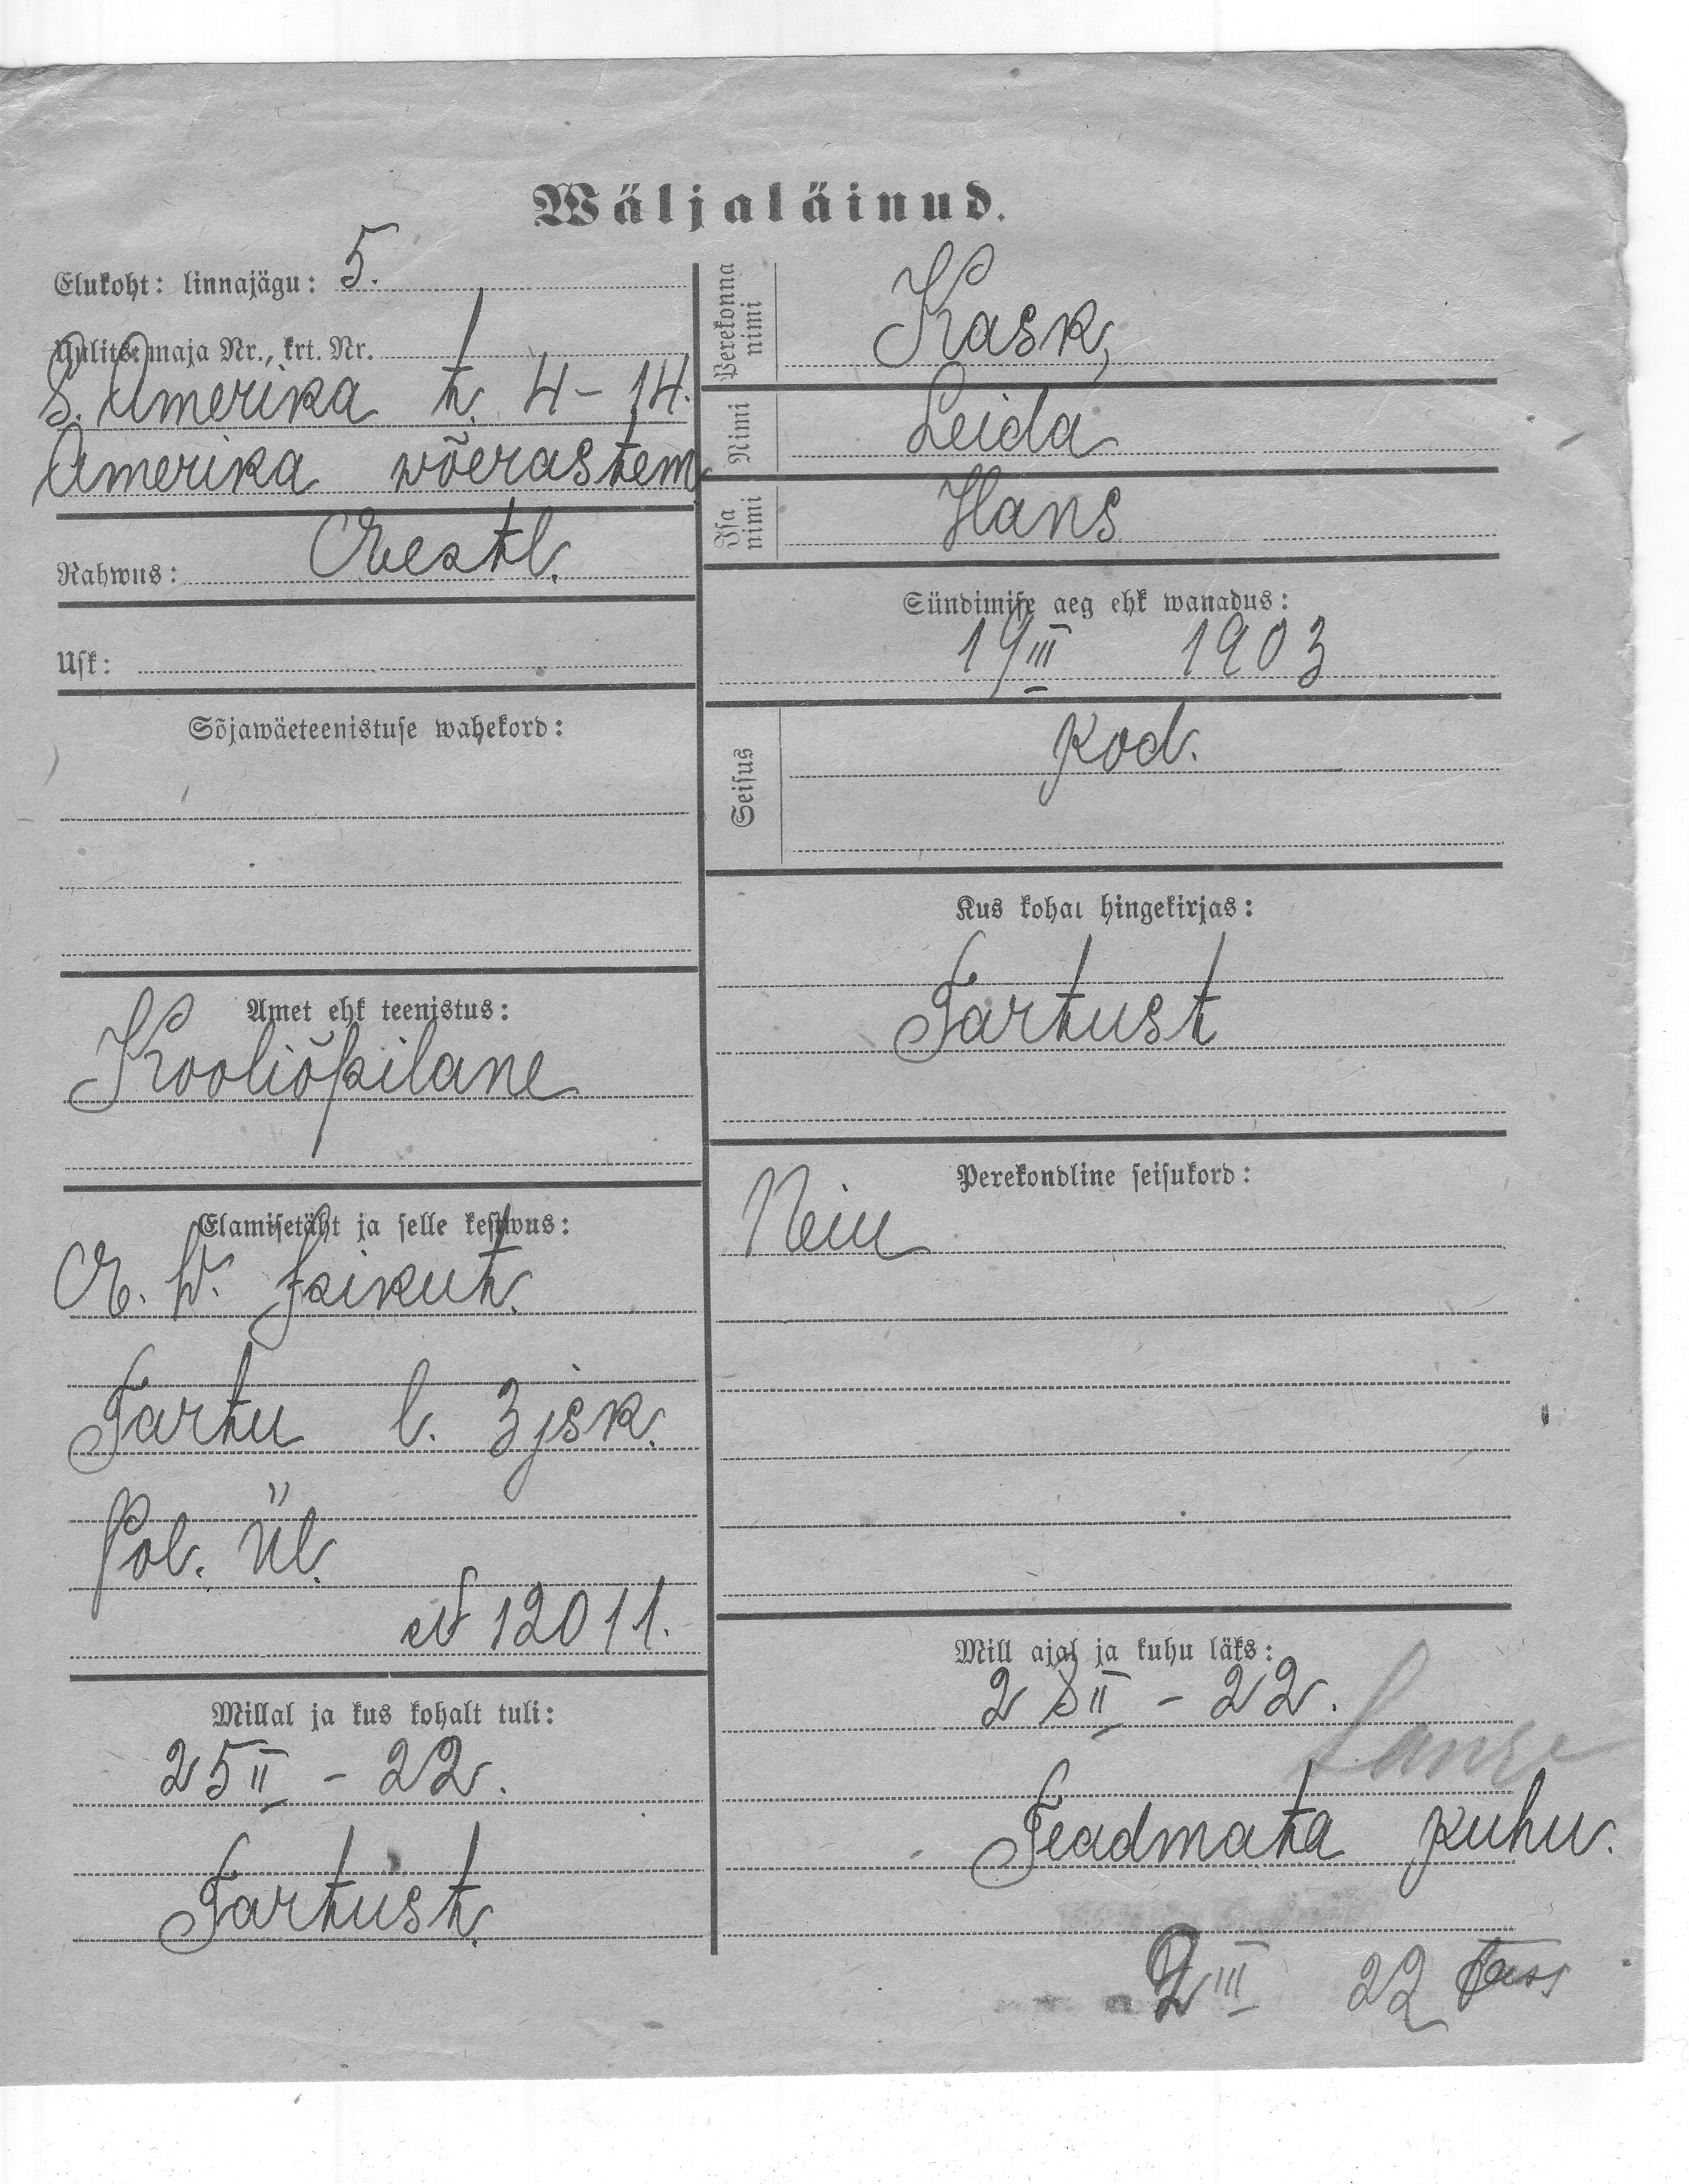 Wäljaläinud.
Elukoht: linnajägu: 5.
Uulits, maja Nr., krt. Nr.
S. Amerika t. 4-14.
Amerika wõerastem
Rahwus: Eestl.
Usk:
Sõjawäeteenistuse wahekord:
Amet ehk teenistus:
Kooliõpilane
Elamisetäht ja selle kestwus:
E. W.
Tartu l. 3 jsk.
Pol. Ül.
№ 12011.
Millal ja kus kohalt tuli:
25 II - 22.
Tartust.
Perekonna nimi Kask,
Nimi Leida
Isa nimi Hans
Sündimise aeg ehk wanadus:
19 III 1903
Seisus kod.
Kus kohal hingekirjas:
Tartust
Perekondline seisukord:
Neiu
Mill ajal ja kuhu läks:
28 II - 22.
Teadmata kuhu.
2 III 22